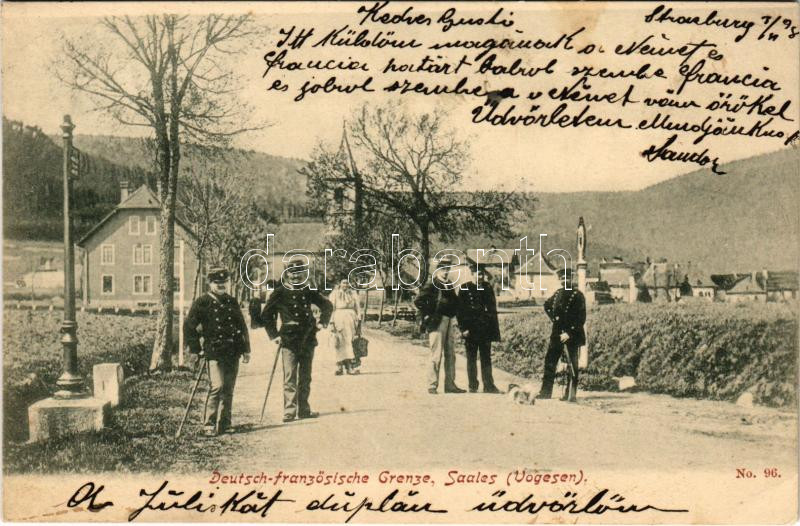 Kedves Gustó
Strasburg
Itt Küldöm magának a Német és
francia határt balrol szembe francia
és jobrol szembe a Német
Üdvözletem Mindjáknak
Sandor
darabanth
Deutsch-französische Grenze, Saales (Vogesen).
No. 96.
A Juliskát duplán üdvözlöm